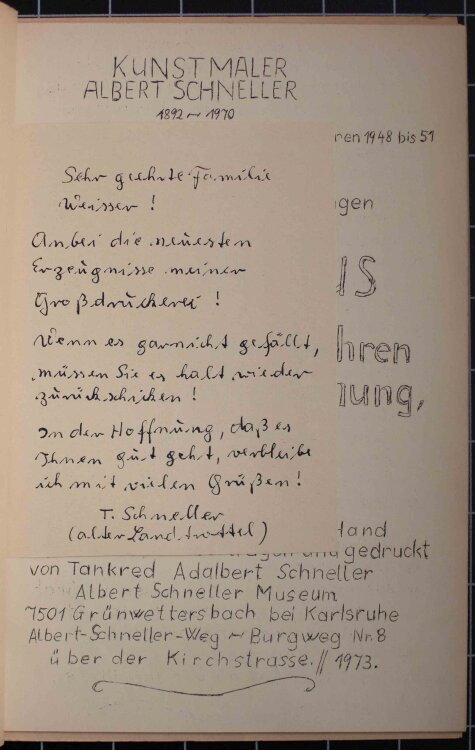 KUNSTMALER
ALBERT SCHNELLER
1892 ~ 1970
ren 1948 bis 51
Sehr geehrte Familie
Weisser !
gen
Anbei die neuesten
Erzeugnisse meiner
Großdruckerei !
IS
Wenn es garnicht gefällt,
müssen Sie es halt wieder
zurückschicken !
hren
ung,
In der Hoffnung, daß es
Ihnen gut geht, verbleibe
ich mit vielen Grüßen !
T. Schneller
(alter Landtrottel)
Hand
und gedruckt
von Tankred Adalbert Schneller
Albert Schneller Museum
7501 Grünwettersbach bei Karlsruhe
Albert-Schneller-Weg ~ Burgweg Nr. 8
über der Kirchstrasse. // 1973.